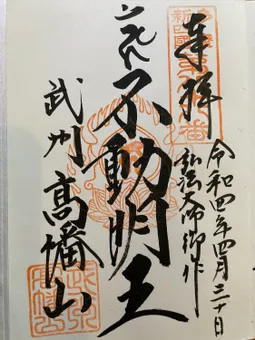 奉拝
令和四年四月三十日
弘法大師御作
不動明王
武州 高幡山